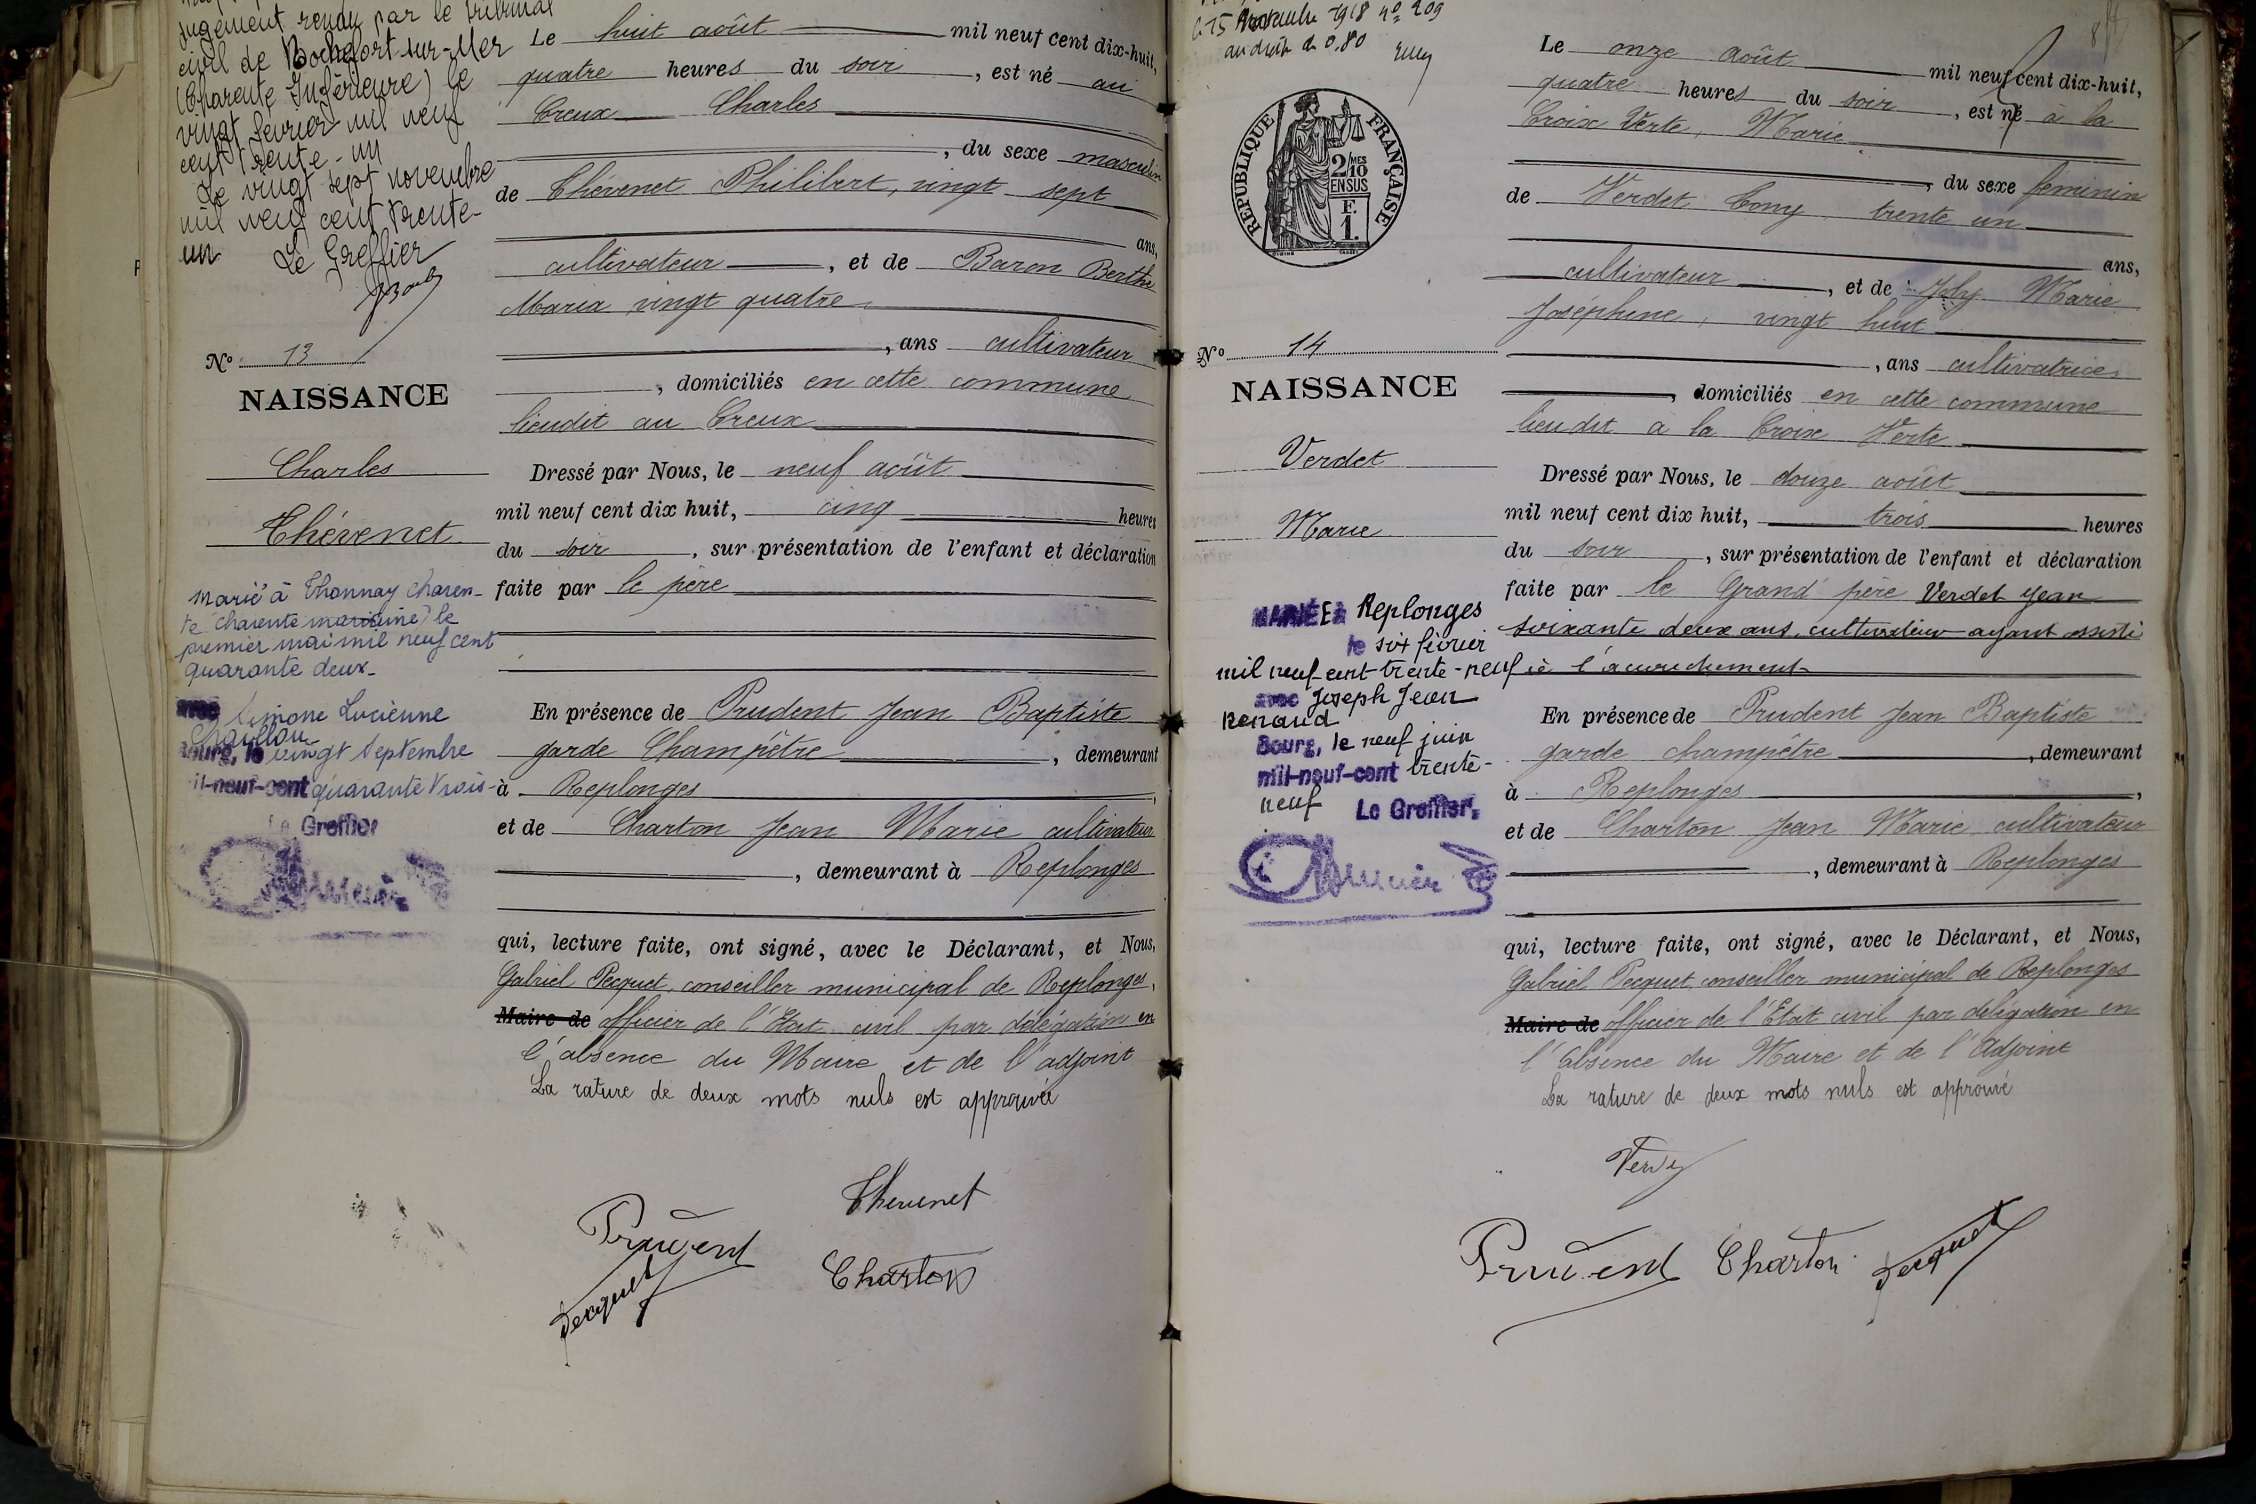 jugement rendu par le Tribunal
civil de Rochefort-sur-Mer
(Charente Inférieure) le
vingt février mil neuf
cent trente-un
Le vingt sept novembre
mil neuf cent trente-
un
Le Greffier
No 13
NAISSANCE
Charles
Thévenet
Marié à Thonnay Charen-
te (Charente maritime) le
premier mai mil neuf cent
quarante deux_
avec Simone Lucienne
Bourg, le vingt Septembre
mil-neuf-cent quarante trois
Le Greffier
Le huit août mil neuf cent dix-huit,
quatre heures du soir, est né au
Creux Charles
, du sexe masculin
de Thévenet Philibert, vingt sept
ans,
cultivateur, et de Baron Berthe
Maria vingt quatre
, ans cultivateur
, domiciliés en cette commune
lieudit au Creux
Dressé par Nous, le neuf août
mil neuf cent dix huit, cinq heures
du soir, sur présentation de l'enfant et déclaration
faite par le père
En présence de Prudent Jean Baptiste
garde Champêtre, demeurant
à Replonges,
et de Charton Jean Marie cultivateur
, demeurant à Replonges
qui, lecture faite, ont signé, avec le Déclarant, et Nous,
Gabriel Pecquet, conseiller municipal de Replonges,
Maire de officier de l'Etat civil par délégation en
l'absence du Maire et de l'adjoint
La rature de deux mots nuls est approuvée
Thevenet
Prudent
Charton
Pecquet
1918 no 209
au droit de 0.80
REPUBLIQUE FRANÇAISE
2/10
MES
EN SUS
F.
1.
No 14
NAISSANCE
Verdet
Marie
MARIÉE à Replonges
le six février
mil neuf cent trente-neuf
avec Joseph Jean
Renaud
Bourg, le neuf juin
mil-neuf-cent trente-
neuf Le Greffier,
Le onze août mil neuf cent dix-huit,
quatre heures du soir, est né à la
Croix Verte, Marie
, du sexe féminin
de Verdet Tony trente un
ans,
cultivateur, et de Joly Marie
Joséphine, vingt huit
, ans cultivatrice
, domiciliés en cette commune
lieu dit a la Croix Verte
Dressé par Nous, le douze août
mil neuf cent dix huit, trois heures
du soir, sur présentation de l'enfant et déclaration
faite par le Grand père Verdet Jean
soixante deux ans, cultivateur ayant assisté
à l'accouchement
En présence de Prudent Jean Baptiste
garde champêtre, demeurant
à Replonges,
et de Charton Jean Marie cultivateur
, demeurant à Replonges
qui, lecture faite, ont signé, avec le Déclarant, et Nous,
Gabriel Pecquet conseiller municipal de Replonges
Maire de officier de l'Etat civil par délégation en
l'absence du Maire et de l'Adjoint
La rature de deux mots nuls est approuvé
Prudent Charton Pecquet